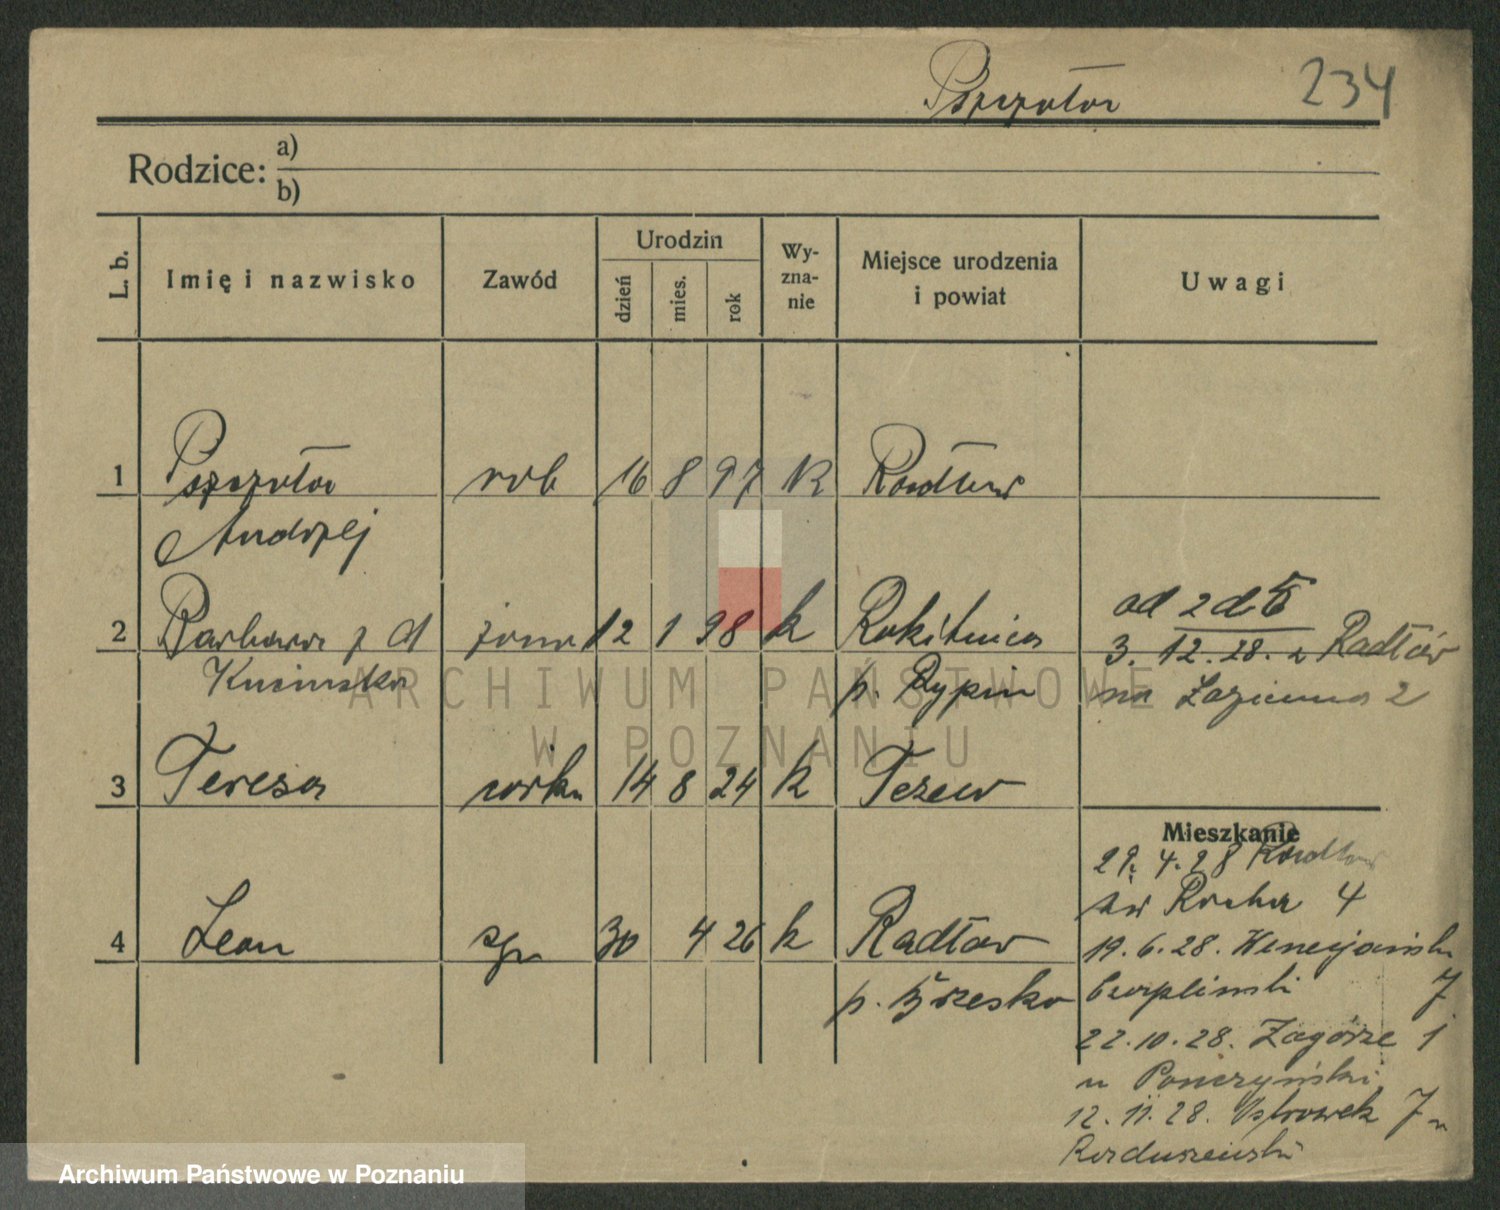 Pszczoła 234
Rodzice: a)
b)
L. b. Imię i nazwisko Zawód Urodzin dzień mies. rok Wyznanie Miejsce urodzenia i powiat Uwagi
1 Pszczoła rob 16 8 97 k Radłów
Andrzej
2 Barbara z d żona 12 1 98 k Rokitnica od 2 d
3. 12. 28. z Radłów
p. Rypin na Łazienna 2
3 Teresa córka 14 8 24 k Tczew
Mieszkanie
29. 4. 28 Radłów
św Rocha 4
4 Leon syn 30 4 26 k Radłów 19. 6. 28. Wenecjańska
p. Brzesko 7
22. 10. 28. Zagórze 1
u
12. 11. 28. Ostrówek 7 u
Raduszewski
ARCHIWUM PAŃSTWOWE
W POZNANIU
Archiwum Państwowe w Poznaniu